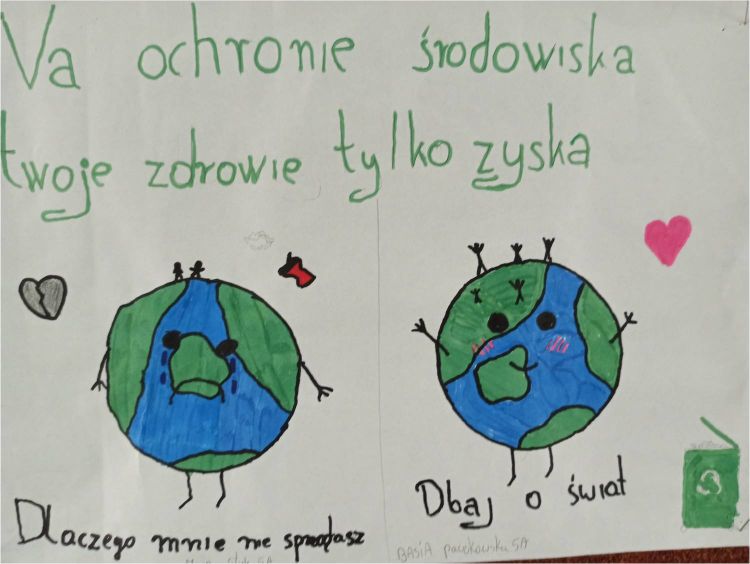 Na ochronie środowiska
twoje zdrowie tylko zyska
Dlaczego mnie nie sprzątasz
Dbaj o świat
BASIA 5A
5A